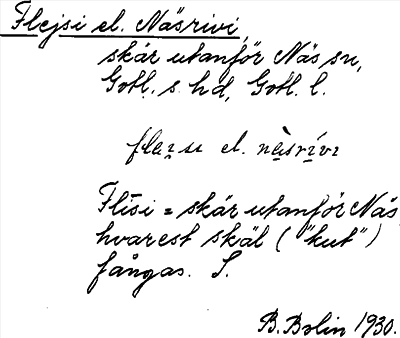 Flejsi el. Näsrivi,
skär utanför Näs sn,
Gotl. s. hd, Gotl. l.
flei̯su el. nàsrívı
Flīsi = skär utanför Näs
hvarest skäl ("kut")
fångas. S.
B. Bolin 1930.